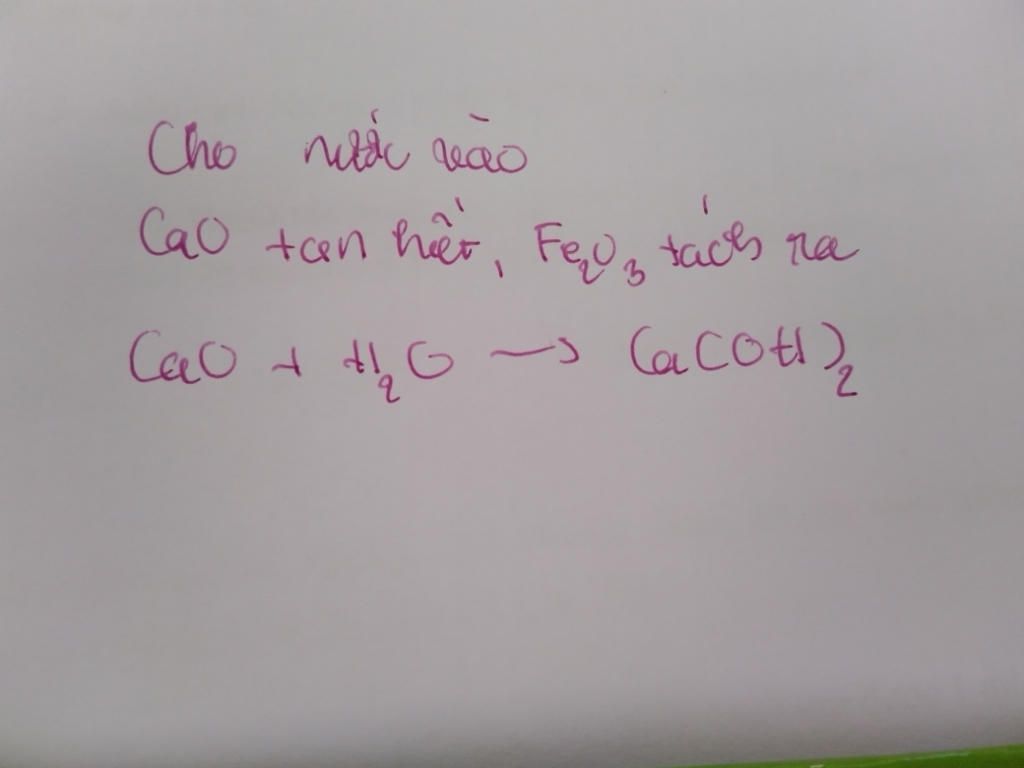 Cho nước vào
CaO tan hết, Fe₂O₃ tách ra
CaO + H₂O → Ca(OH)₂